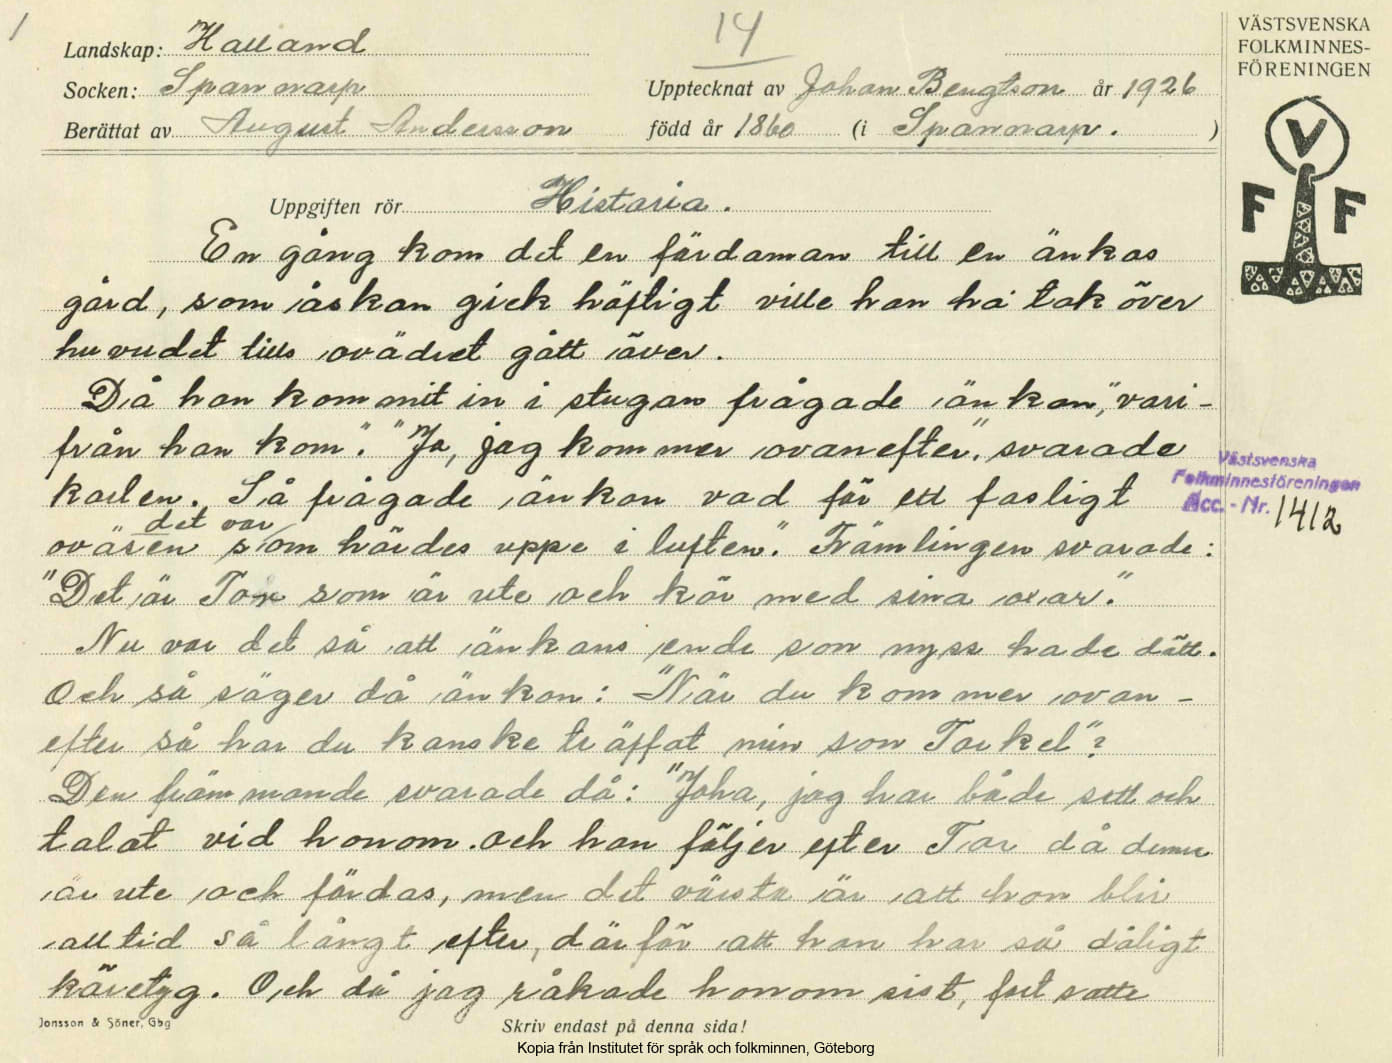 1
14
Landskap: Halland
Socken: Spannarp
Upptecknat av Johan Bengtson år 1926
Berättat av August Andersson
född år 1860 (i Spannarp. )
VÄSTSVENSKA
FOLKMINNES-
FÖRENINGEN
V
F F
Uppgiften rör Historia.
En gång kom det en färdaman till en änkas
gård, som åskan gick häftigt ville han ha tak över
huvudet tills ovädret gått över.
Då han kommit in i stugan frågade änkan, "vari-
från han kom". "Ja, jag kommer ovanefter", svarade
karlen. Så frågade änkan vad för ett fasligt
oväsen det var som hördes uppe i luften." Främlingen svarade:
"Det är Tor som är ute och kör med sina oxar."
Nu var det så att änkans ende son nyss hade dött.
Och så säger då änkan: "När du kommer ovan-
efter så har du kanske träffat min son Torkel"?
Den främmande svarade då: "Joha, jag har både sett och
talat vid honom. och han följer efter Tor då denne
är ute och färdas, men det värsta är att han blir
alltid så långt efter, därför att han har så dåligt
köretyg. Och då jag råkade honom sist, fortsatte
Västsvenska
Folkminnesföreningen
Acc. - Nr. 1412
Jonsson & Söner, Gbg
Skriv endast på denna sida!
Kopia från Institutet för språk och folkminnen, Göteborg